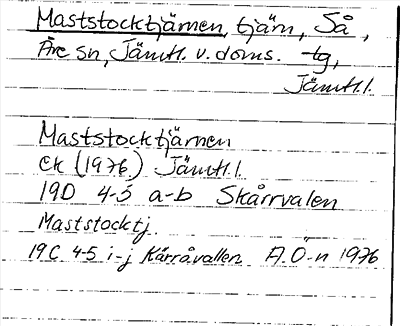 Maststocktjärnen, tjärn, Så,
Åre sn, Jämtl. v. doms. tg,
Jämtl. l.
Maststocktjärnen
Ek (1976) Jämtl. l.
19D 4-5 a-b Skårrvalen
Maststocktj.
19C 4-5 i-j Kärråvallen A.Ö-n 1976